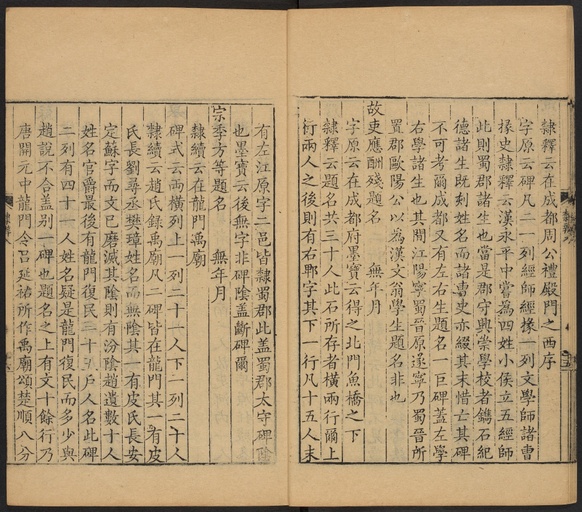 隸釋云在成都周公禮殿門之西序
字原云碑凡二一列經師經掾一列文學師諸曹
掾史隸釋云漢永平中嘗為四姓小侯立五經師
此則蜀郡諸生也當是郡守興崇學校者鐫石紀
德諸生既刻姓名而諸曹史亦綴其末惜亡其碑
不可考爾成都又有左右生題名一巨碑蓋左學
右學諸生也其間江陽寧蜀晉原遂寧乃蜀晉所
置郡歐陽公以為漢文翁學生題名非也
故吏應酬殘題名 無年月
字原云在成都府墨寶云得之北門魚橋之下
隸釋云題名共三十人此石所存者橫兩行爾上
行兩人之後則有右鄲字其下一行凡十五人末
有左江原字二邑皆隸蜀郡此蓋蜀郡太守碑陰
也墨寶云後無字非碑陰蓋斷碑爾
宗季方等題名 無年月
隸續云在龍門禹廟
碑式云兩橫列上一列二十一人下一列二十人
隸續云趙氏錄禹廟凡二碑皆在龍門其一有皮
氏長劉尋丞樊璋姓名而無陰其一有皮氏長安
定蘇字而文已磨滅其陰則有汾陰趙遺數十人
姓名官爵最後有龍門復民三十五戶人名此碑
二列有四十一人姓名疑是龍門復民而多少與
趙說不合蓋別一碑也題名之上有文十餘行乃
唐開元中龍門令呂延祐所作禹廟頌楚順八分